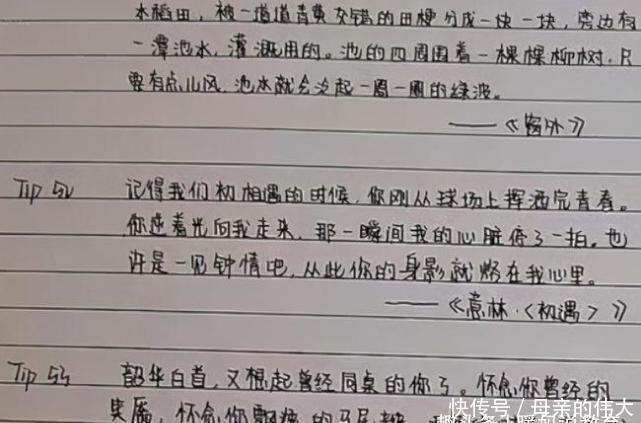 水稻田，被一道道青黄交错的田埂分成一块一块，旁边有
一潭池水，灌溉用的。池的四周围着一棵棵柳树，只
要有点儿风，池水就会泛起一圈一圈的绿波。
——《窗外》
Tip 52 记得我们初相遇的时候，你刚从球场上挥洒完青春。
你逆着光向我走来，那一瞬间我的心脏停了一拍。也
许是一见钟情吧，从此你的身影就烙在我心里。
——《意林·<初遇>》
Tip 53 韶华白首，又想起曾经同桌的你了。怀念你曾经的
笑靥，怀念你飘扬的马尾辫
快传号／母亲的伟大